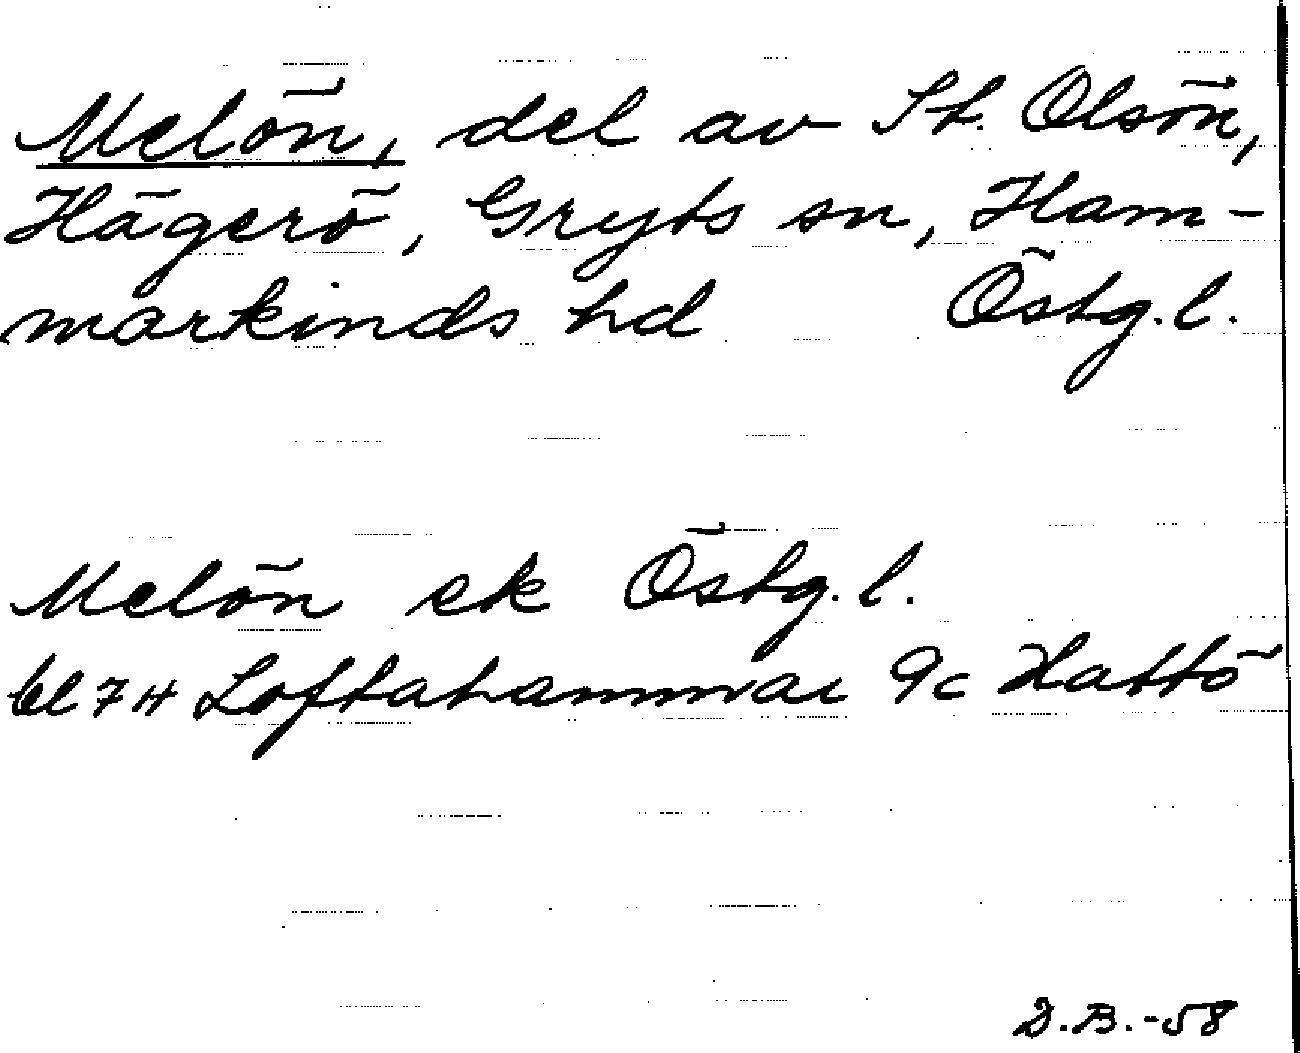 Melön, del av St. Olsön,
Hägerö, Gryts sn, Ham-
markinds hd Östg.l.
Melön ek Östg.l.
bl 7H Loftahammar 9c Hattö
D.B.-58